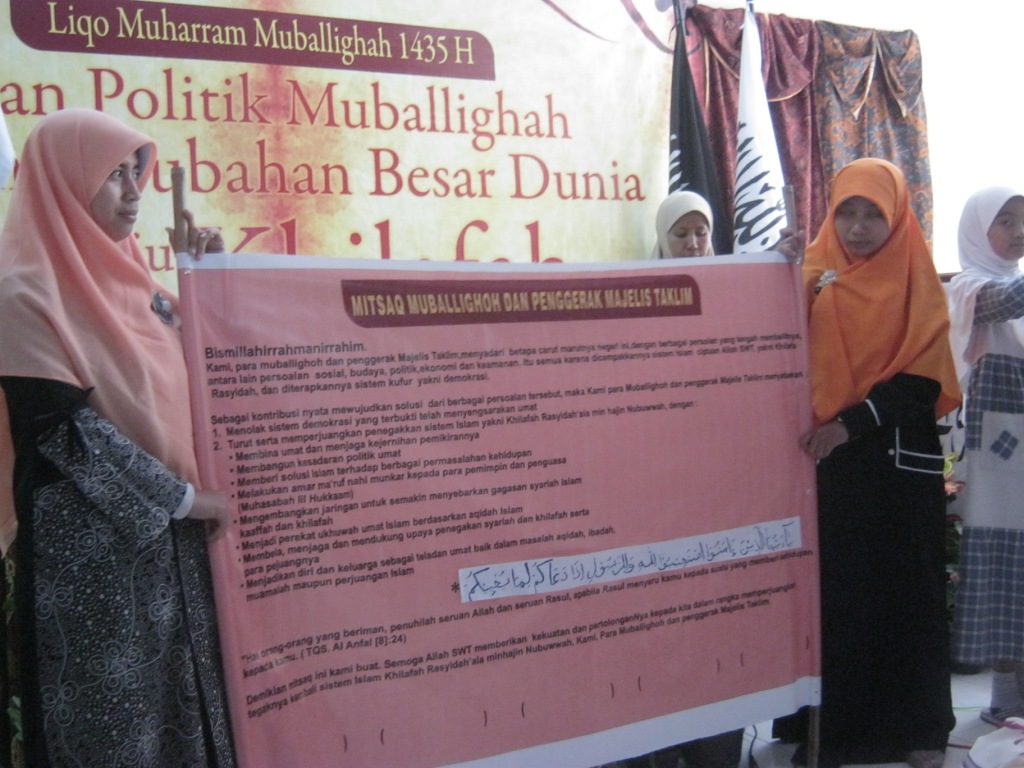 Liqo Muharram Muballighah 1435 H
an Politik Muballighah
ubahan Besar Dunia
Khilafah
MITSAQ MUBALLIGHOH DAN PENGGERAK MAJELIS TAKLIM
Bismillahirrahmanirrahim.
Kami, para muballighoh dan penggerak Majelis Taklim,menyadari betapa carut marutnya negeri ini,dengan berbagai persoalan yang tengah membelitnya,
antara lain persoalan sosial, budaya, politik,ekonomi dan keamanan. Itu semua karena dicampakkannya sistem Islam ciptaan Allah SWT, yakni Khilafah
Rasyidah, dan diterapkannya sistem kufur yakni demokrasi.
Sebagai kontribusi nyata mewujudkan solusi dari berbagai persoalan tersebut, maka Kami para Muballighoh dan penggerak Majelis Taklim menyatakan
1. Menolak sistem demokrasi yang terbukti telah menyengsarakan umat
2. Turut serta memperjuangkan penegakkan sistem Islam yakni Khilafah Rasyidah'ala min hajin Nubuwwah, dengan :
• Membina umat dan menjaga kejernihan pemikirannya
• Membangun kesadaran politik umat
• Memberi solusi Islam terhadap berbagai permasalahan kehidupan
• Melakukan amar ma'ruf nahi munkar kepada para pemimpin dan penguasa
(Muhasabah lil Hukkaam)
• Mengembangkan jaringan untuk semakin menyebarkan gagasan syariah Islam
kaaffah dan khilafah
• Menjadi perekat ukhuwah umat Islam berdasarkan aqidah Islam
• Membela, menjaga dan mendukung upaya penegakan syariah dan khilafah serta
para pejuangnya
• Menjadikan diri dan keluarga sebagai teladan umat baik dalam masalah aqidah, ibadah,
muamalah maupun perjuangan Islam
* يَا أَيُّهَا الَّذِينَ آمَنُوا اسْتَجِيبُوا لِلَّهِ وَلِلرَّسُولِ إِذَا دَعَاكُمْ لِمَا يُحْيِيكُمْ
"Hai orang-orang yang beriman, penuhilah seruan Allah dan seruan Rasul, apabila Rasul menyeru kamu kepada suatu yang memberi kehidupan
kepada kamu. ( TQS. Al Anfal [8]:24)
Demikian mitsaq ini kami buat. Semoga Allah SWT memberikan kekuatan dan pertolonganNya kepada kita dalam rangka memperjuangkan
tegaknya kembali sistem Islam Khilafah Rasyidah'ala minhajin Nubuwwah. Kami, Para Muballighoh dan penggerak Majelis Taklim.